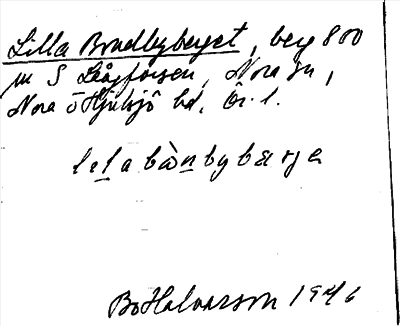 Lilla Bondbyberget, berg 800
m S Långforsen, Nora sn,
Nora o Hjulsjö hd, Ör. l.
lila bònbybærje
Bo Halvarson 1946